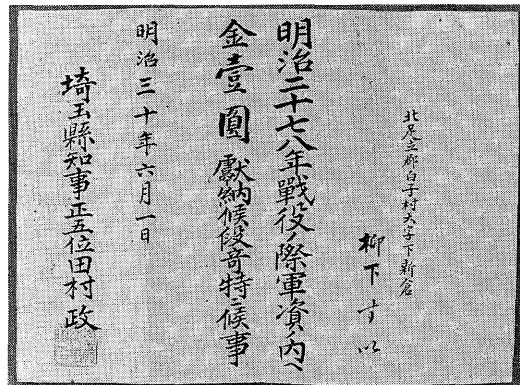 北足立郡白子村大字下新倉
柳下すい
明治二十七八年戰役ノ際軍資ノ内ヘ
金壹圓獻納候段竒特ニ候事
明治三十年六月一日
埼玉縣知事正五位田村政